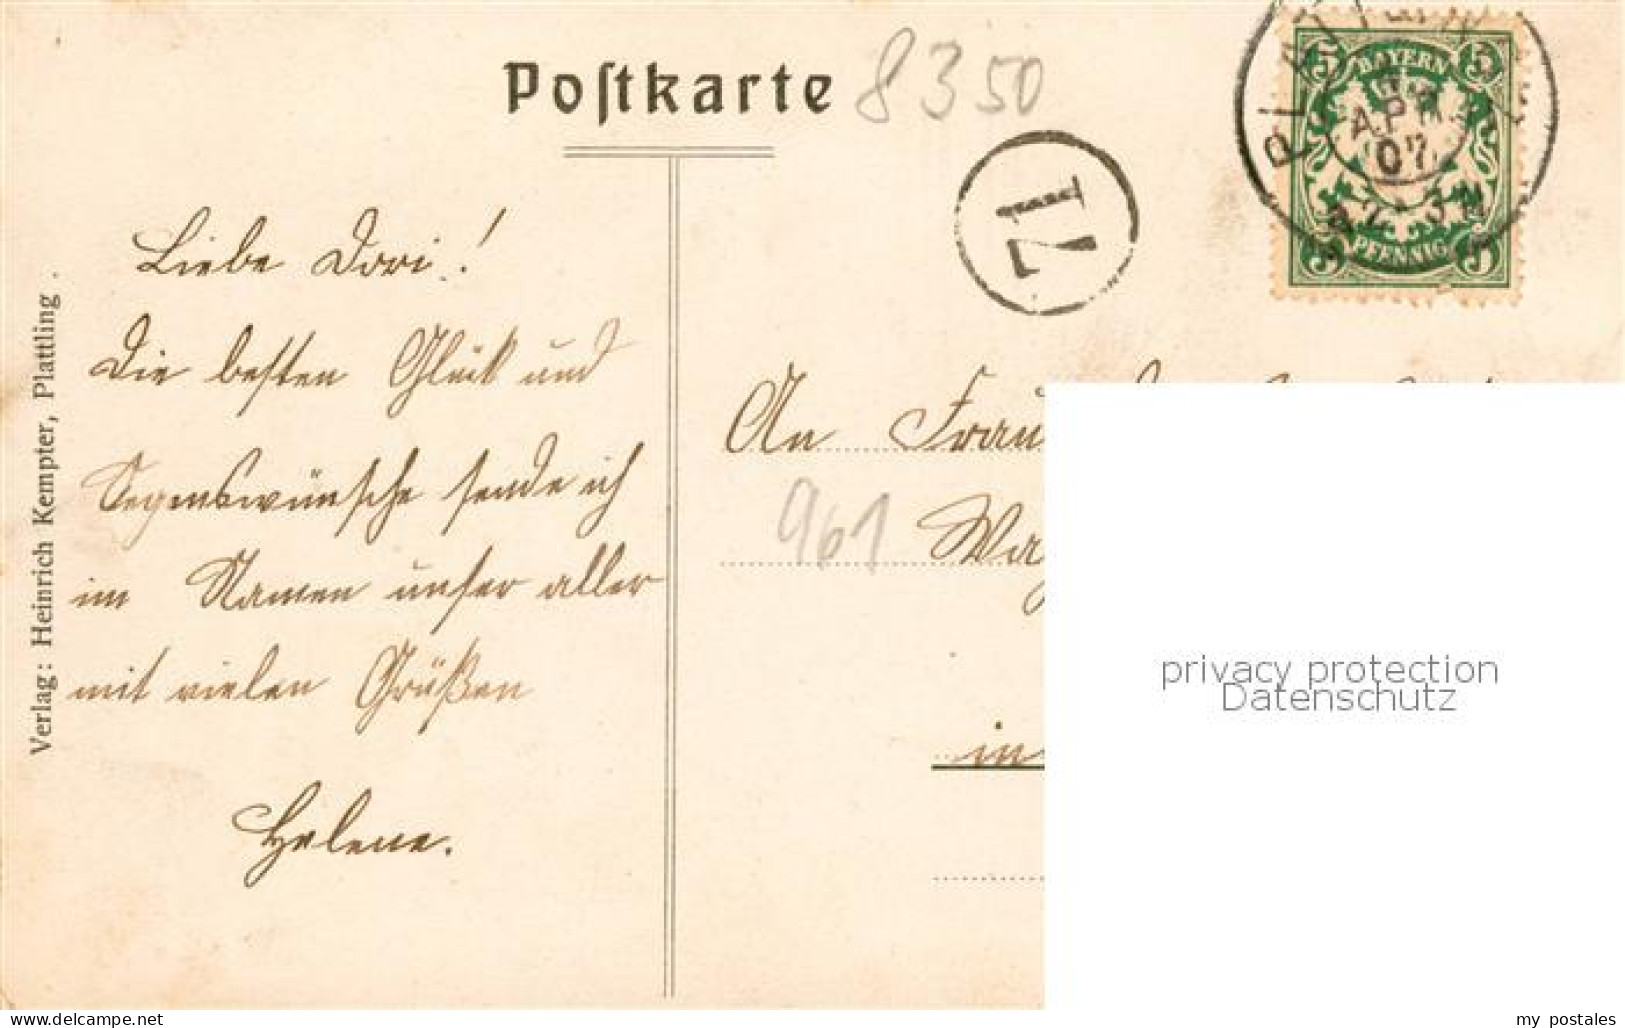 Postkarte
8350
BAYERN
5 5
APR
07
2-3 N
PFENNIG
5 5
12
Liebe Dori!
Die besten Glück und
Segenswünsche sende ich
im Namen unser aller
mit vielen Grüßen
Helene.
An Frau
961
in
Verlag: Heinrich Kempter, Plattling.
privacy protection
Datenschutz
www.delcampe.net
my_postales